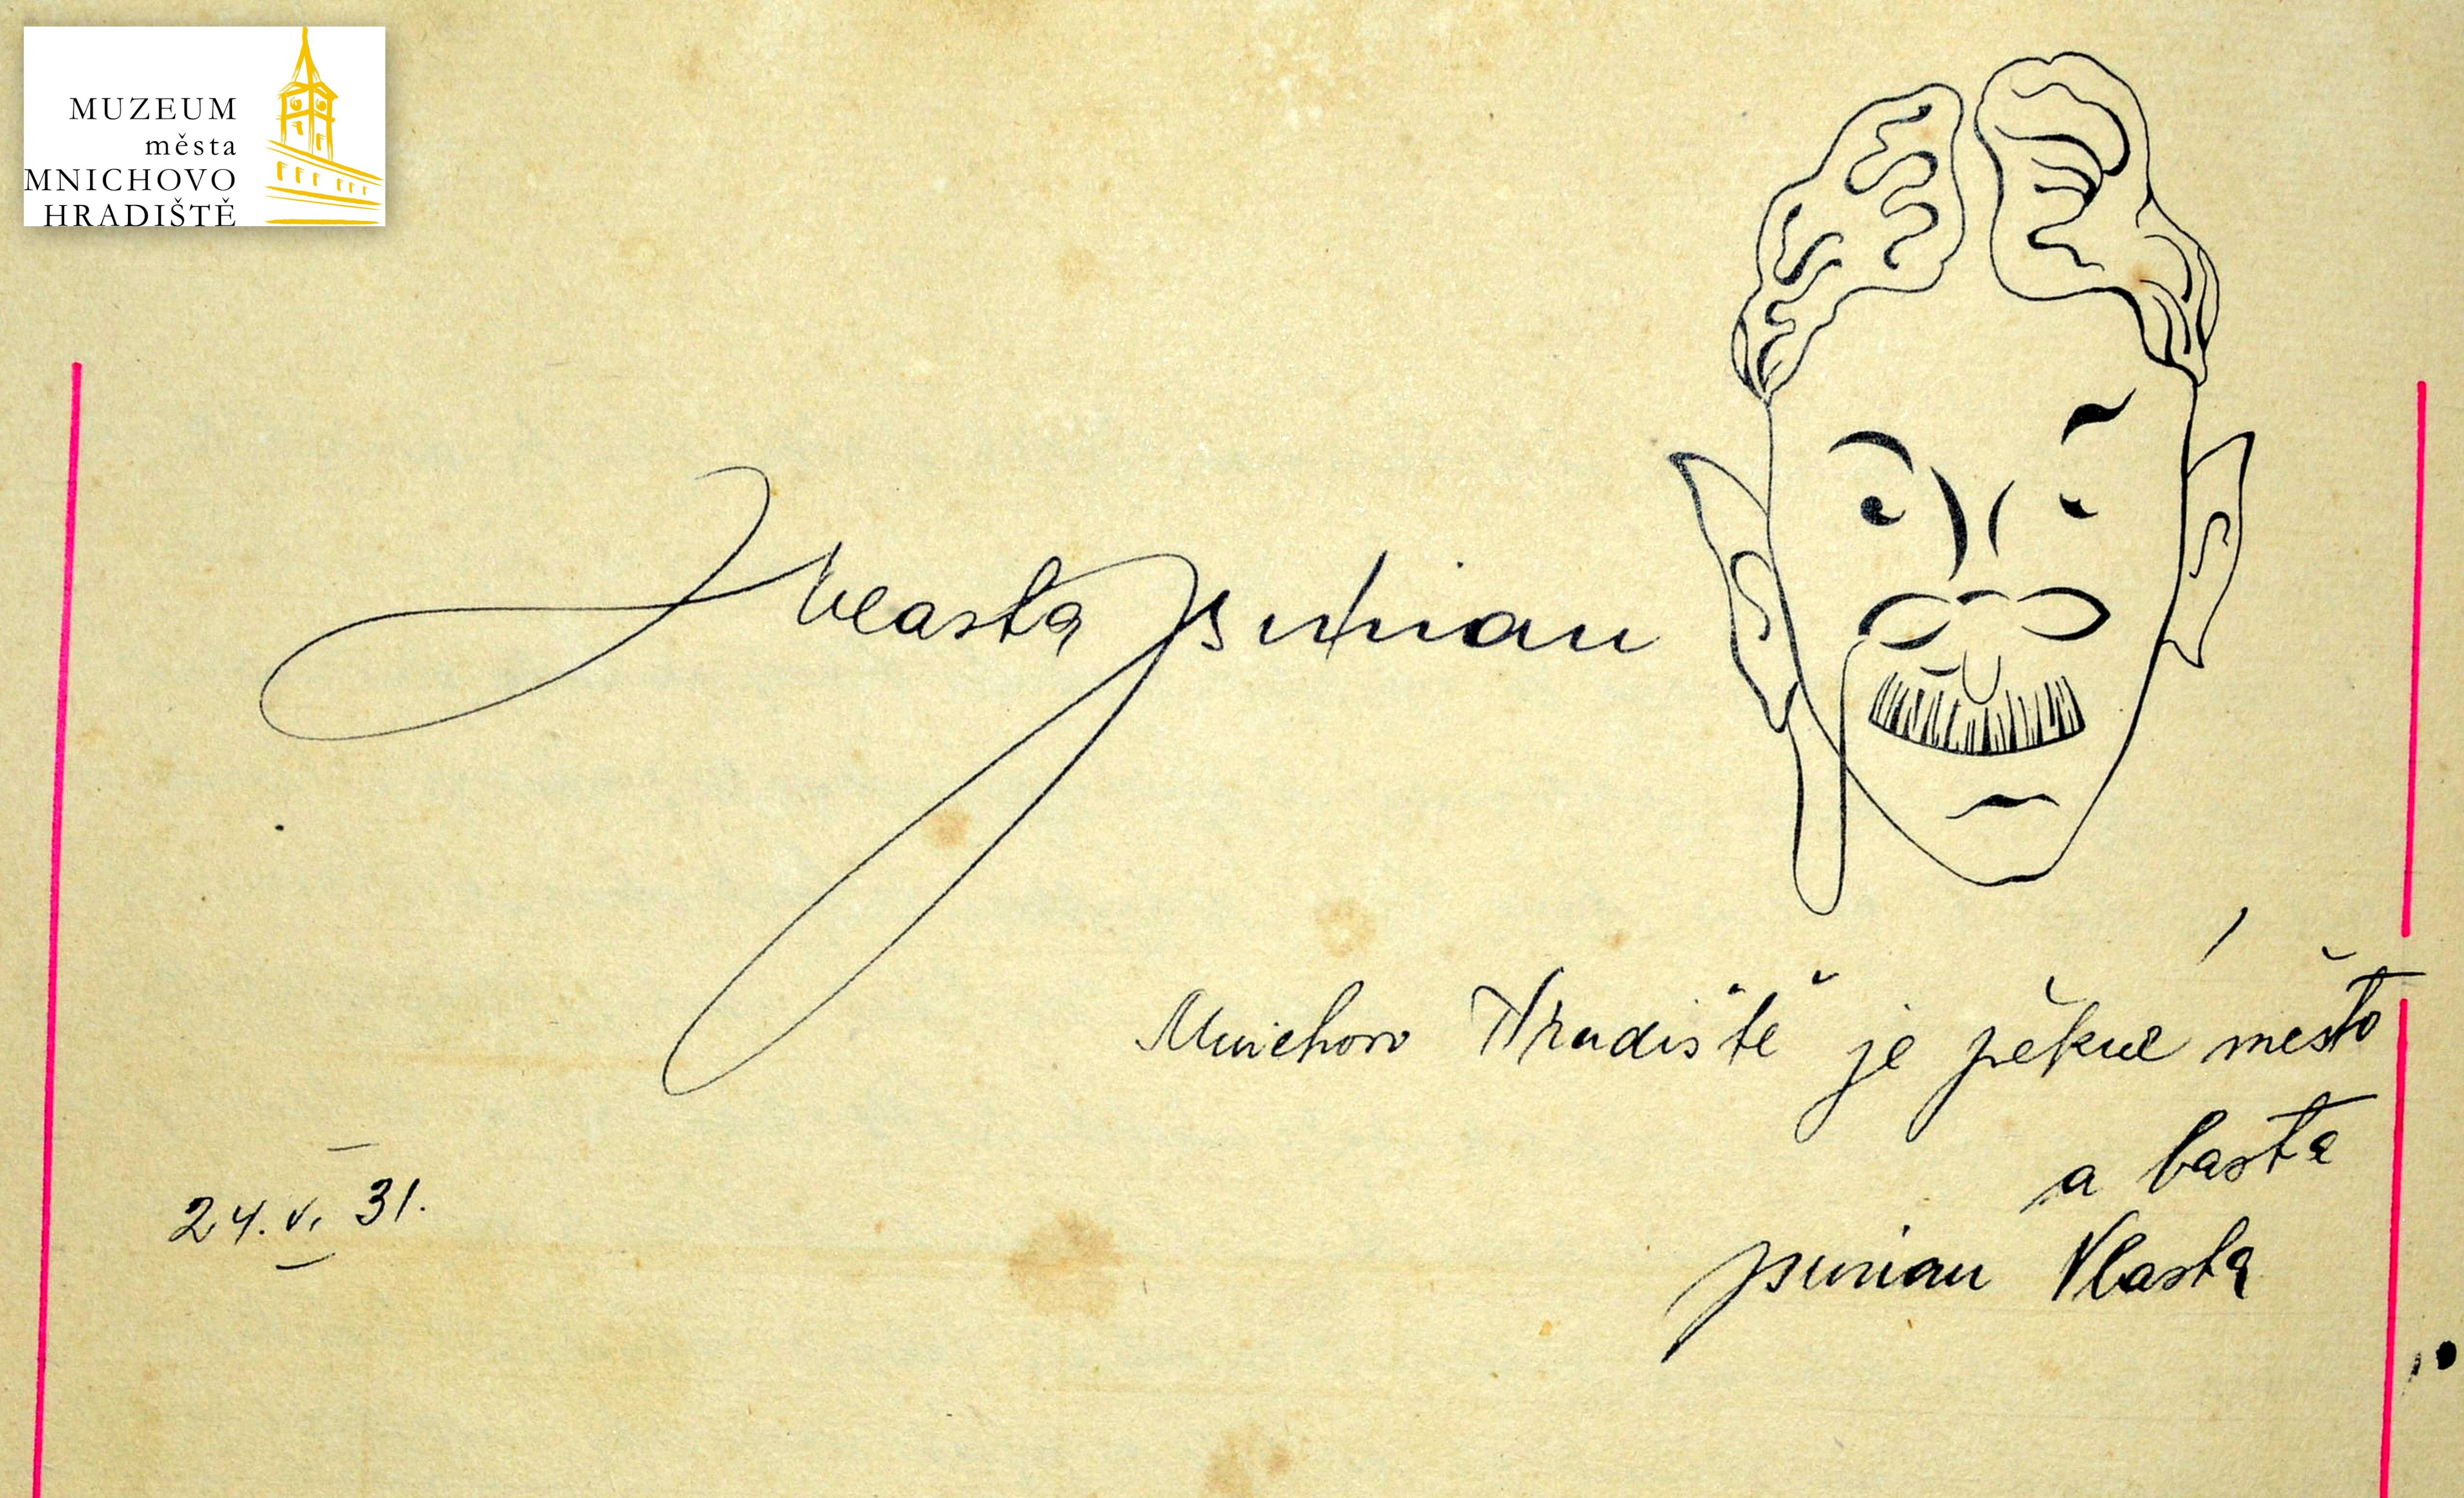 MUZEUM
města
MNICHOVO
HRADIŠTĚ
Vlasta Burian
Mnichovo Hradiště je pěkné město
a basta
Burian Vlasta
24. V. 31.